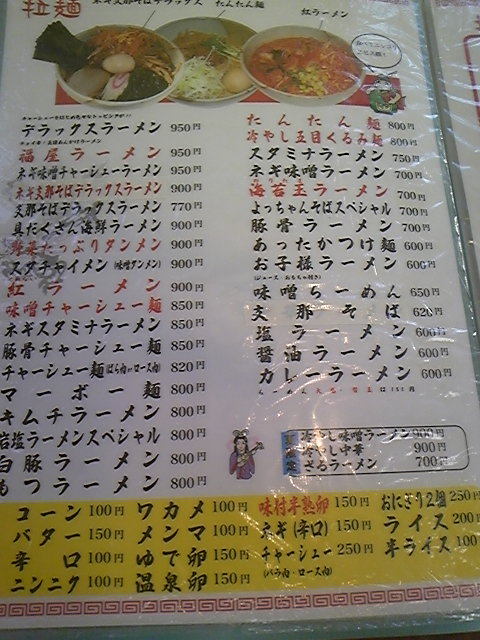 拉麺
ネギ支那そばデラックス
たんたん麺
紅ラーメン
デラックスラーメン 950円
福屋ラーメン 950円
ネギ味噌チャーシューメン 950円
ネギ支那そばデラックスラーメン 900円
支那そばデラックスラーメン 770円
具だくさん海鮮ラーメン 900円
野菜たっぷりタンメン 900円
スタチャイメン(味噌タンメン) 900円
紅ラーメン 900円
味噌チャーシュー麺 850円
ネギスタミナラーメン 850円
豚骨チャーシュー麺 850円
チャーシュー麺(ばら肉orロース肉) 820円
マーボー麺 800円
キムチラーメン 800円
岩塩ラーメンスペシャル 800円
白豚ラーメン 800円
もつラーメン 800円
たんたん麺 800円
冷やし五目くるみ麺 800円
スタミナラーメン 750円
ネギ味噌ラーメン 700円
海苔玉ラーメン 700円
よっちゃんそばスペシャル 700円
豚骨ラーメン 700円
あったかつけ麺 600円
お子様ラーメン 600円
(ジュース・おもちゃ付き)
味噌らーめん 650円
支那そば 620円
塩ラーメン 600円
醤油ラーメン 600円
カレーラーメン 600円
冷やし味噌ラーメン 900円
冷やし中華 900円
ざるラーメン 700円
コーン 100円 ワカメ 100円 味付半熟卵 150円 おにぎり2個 250円
バター 150円 メンマ 100円 ネギ(辛口) 150円 ライス 200円
辛口 100円 ゆで卵 100円 チャーシュー 250円 半ライス 100円
(バラ肉・ロース肉)
ニンニク 100円 温泉卵 150円